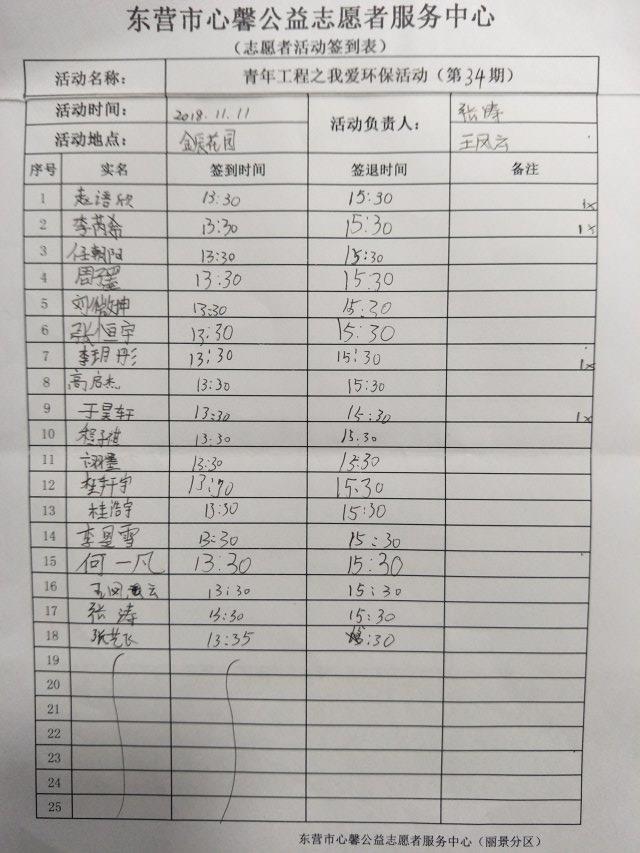 东营市心馨公益志愿者服务中心
（志愿者活动签到表）
活动名称： 青年工程之我爱环保活动（第34期）
活动时间： 2018.11.11 活动负责人： 张涛
活动地点： 金辰花园 王风云
序号 实名 签到时间 签退时间 备注
1 赵语欣 13:30 15:30 1x
2 李芮希 13:30 15:30 1x
3 任朝阳 13:30 15:30
4 周 13:30 15:30
5 刘微坤 13:30 15:30
6 张恒宇 13:30 15:30
7 李玥彤 13:30 15:30 1x
8 高启杰 13:30 15:30
9 于昊轩 13:30 15:30 1x
10 程子祺 13:30 15:30
11 13:30 15:30
12 桂轩宇 13:30 15:30
13 桂浩宇 13:30 15:30
14 李星雪 13:30 15:30
15 何一凡 13:30 15:30
16 王风云 13:30 15:30
17 张涛 13:30 15:30
18 张艺飞 13:35 :30
19
20
21
22
23
24
25
东营市心馨公益志愿者服务中心（丽景分区）